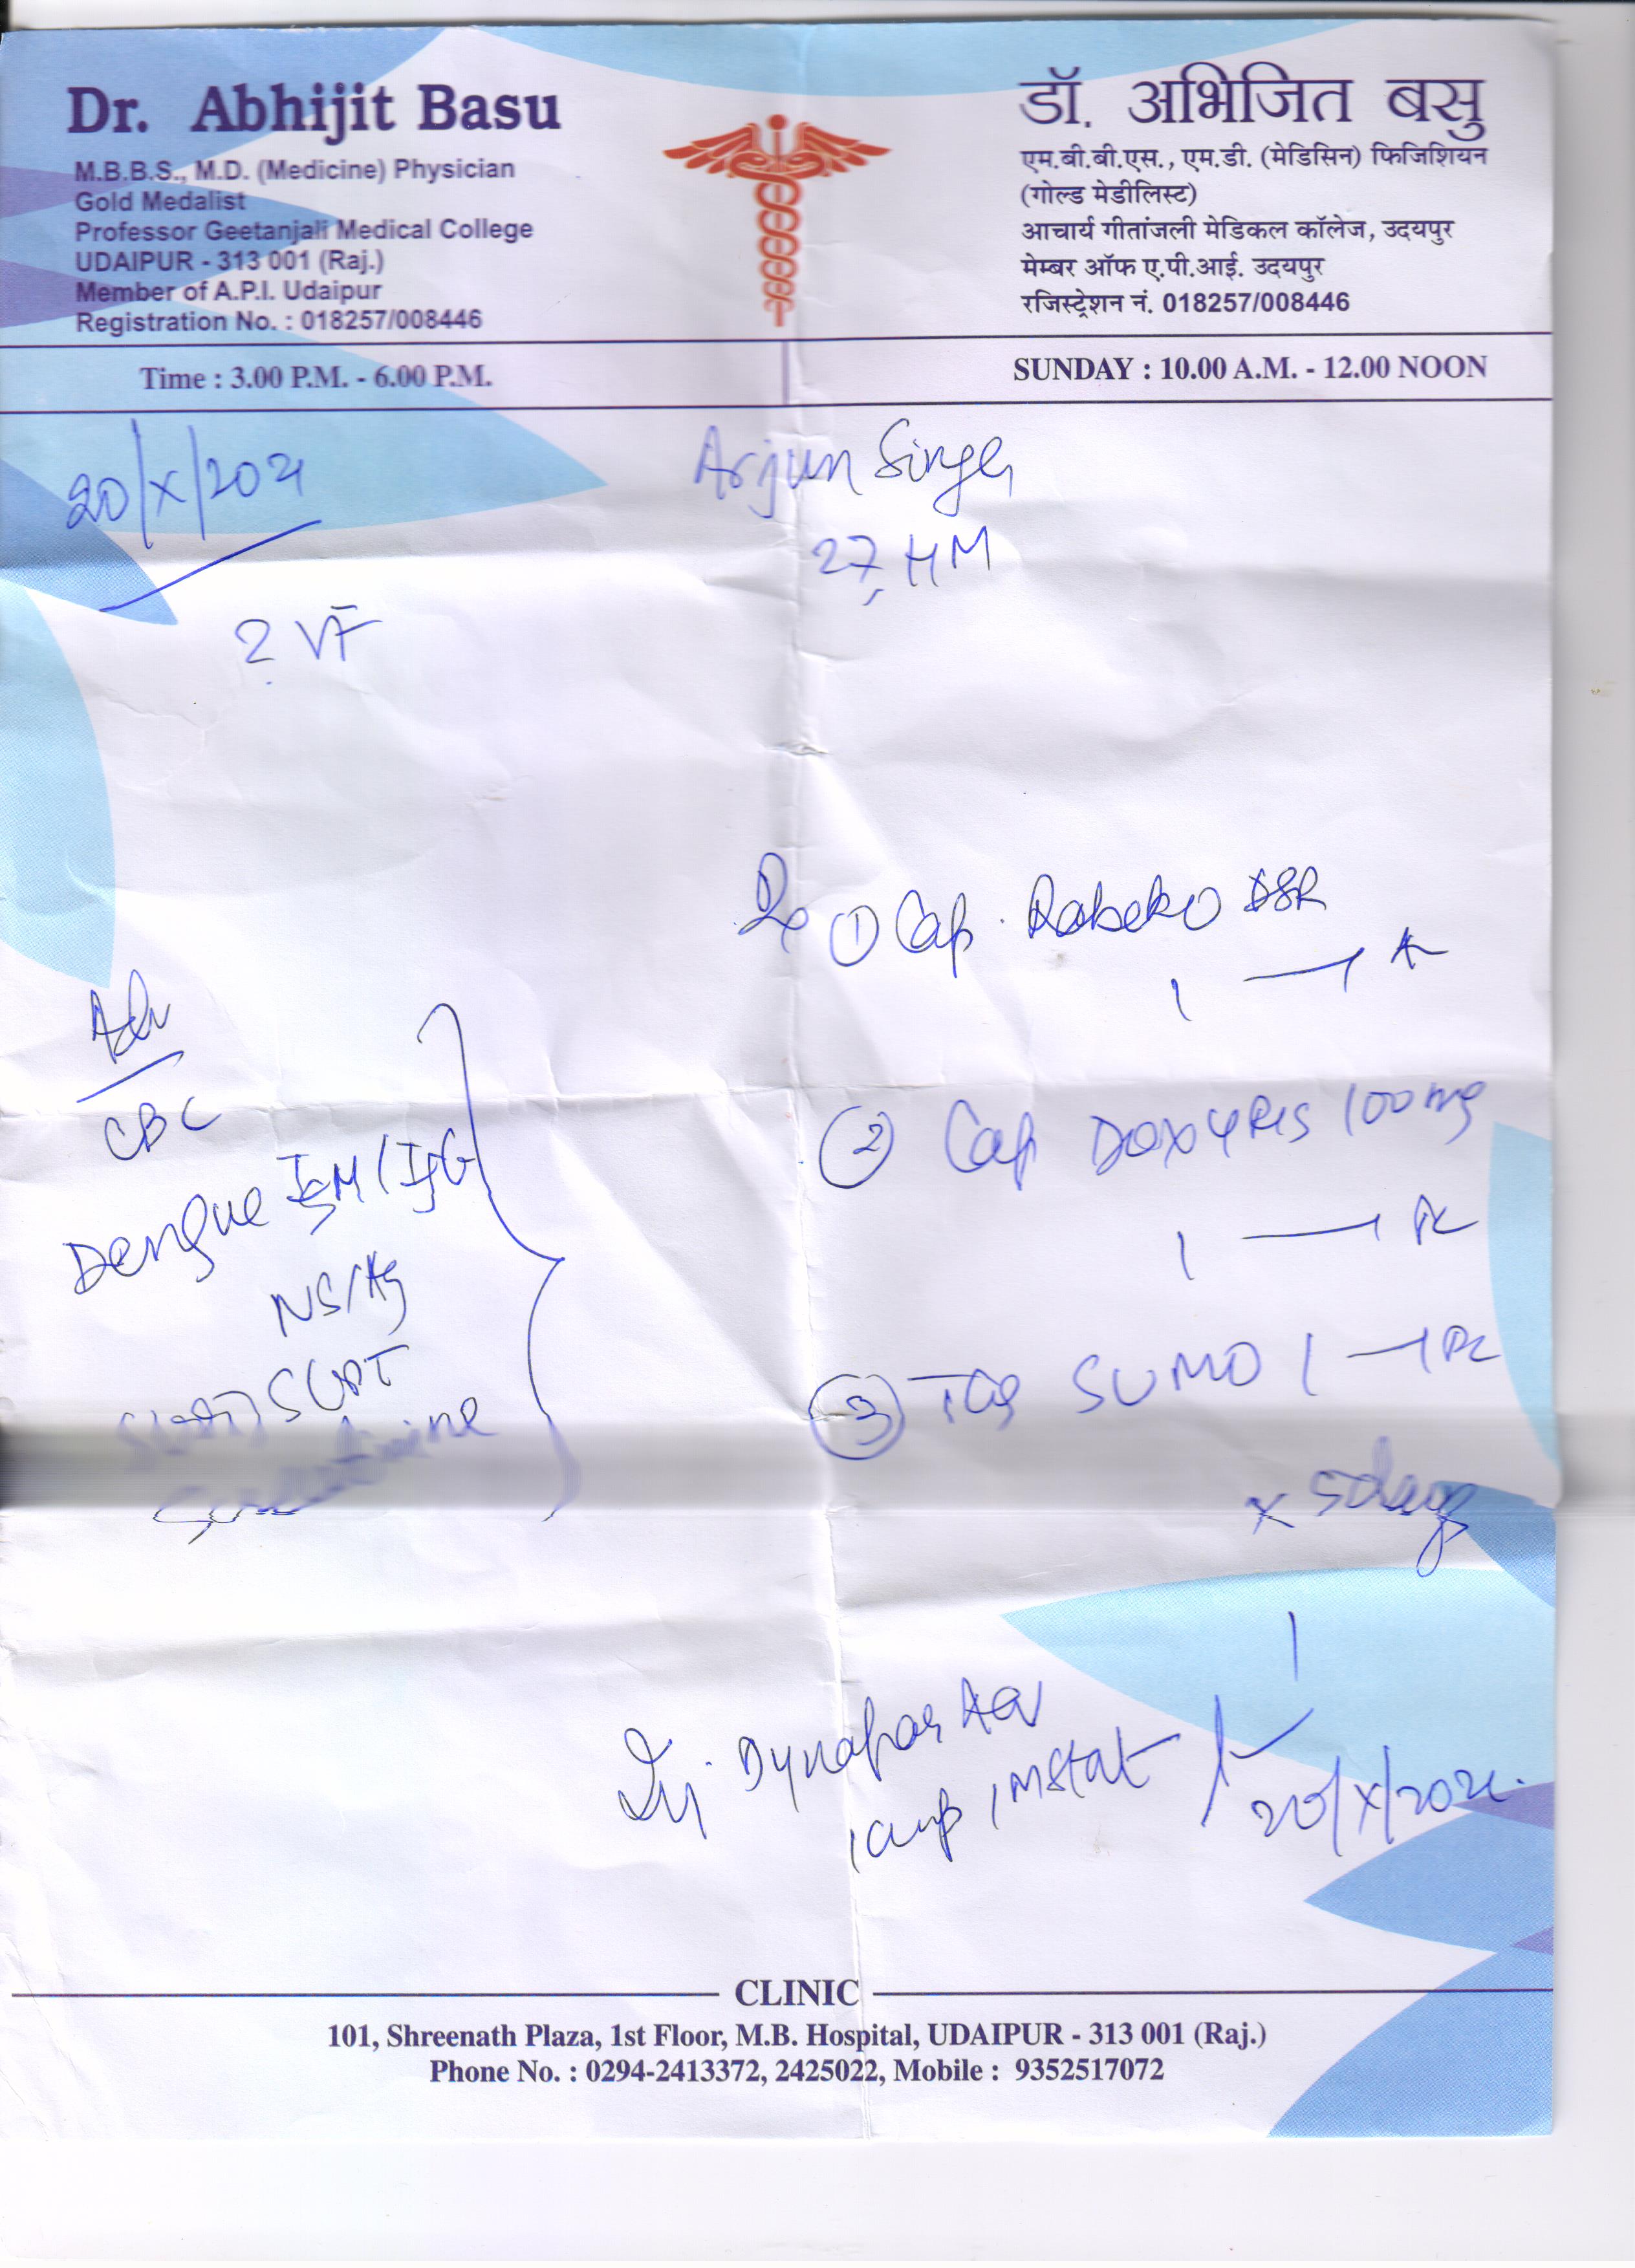 Dr. Abhijit Basu
M.B.B.S., M.D. (Medicine) Physician
Gold Medalist
Professor Geetanjali Medical College
UDAIPUR - 313 001 (Raj.)
Member of A.P.I. Udaipur
Registration No. : 018257/008446
डॉ. अभिजित बसु
एम.बी.बी.एस., एम.डी. (मेडिसिन) फिजिशियन
(गोल्ड मेडीलिस्ट)
आचार्य गीतांजली मेडिकल कॉलेज, उदयपुर
मेम्बर ऑफ ए.पी.आई. उदयपुर
रजिस्ट्रेशन नं. 018257/008446
Time : 3.00 P.M. - 6.00 P.M.
SUNDAY : 10.00 A.M. - 12.00 NOON
20/X/2021
Arjun Singh
27 HM
? VF
Rx ① Cap. Rabeko DSR
1
② Cap 100 mg
1
③ Tab SUMO 1
x 5 days
Adv
CBC
Dengue IgM/IgG
NS1Ag
SGOT/SGPT
S. Creatinine
Inj. Dynapar AQ
1 amp IM stat
20/X/2021.
CLINIC
101, Shreenath Plaza, 1st Floor, M.B. Hospital, UDAIPUR - 313 001 (Raj.)
Phone No. : 0294-2413372, 2425022, Mobile : 9352517072